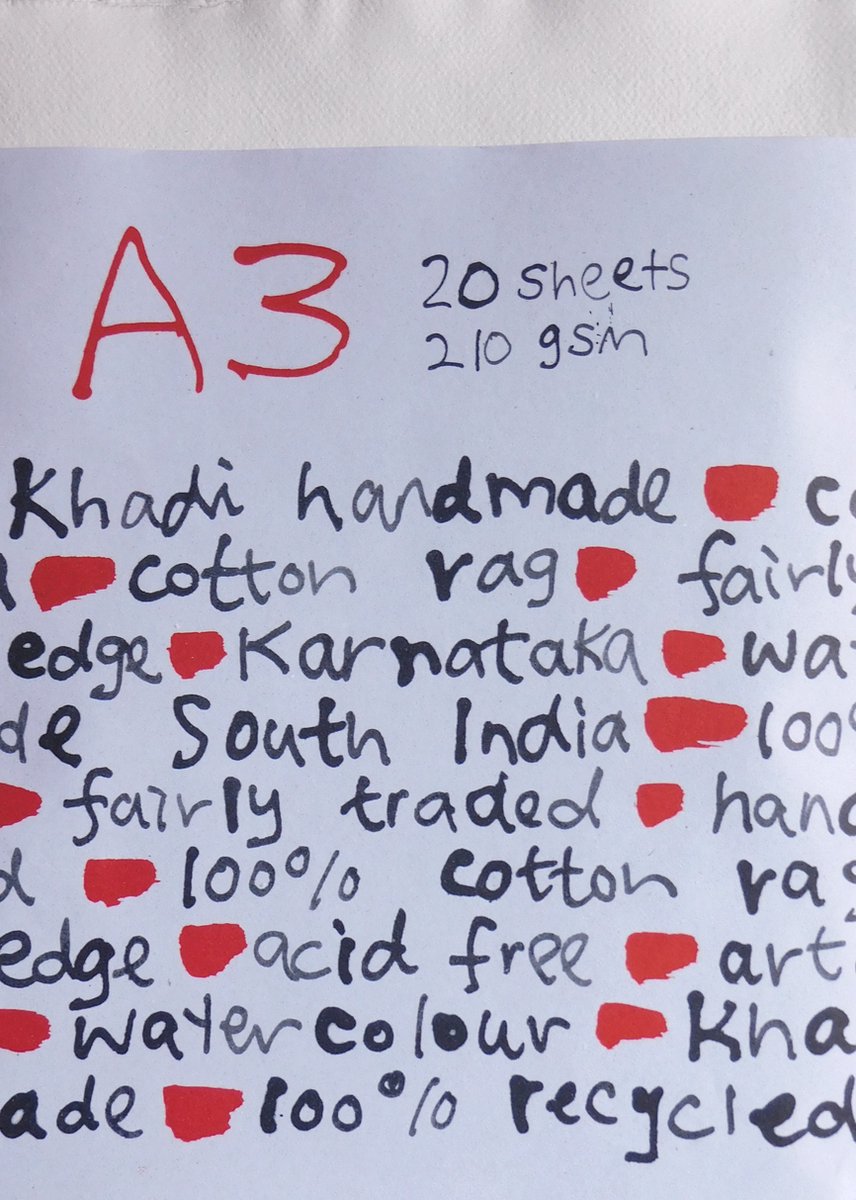 A3
20 sheets
210 gsm
Khadi handmade
cotton rag fairly
edge Karnataka
South India 100%
fairly traded
100% cotton rag
edge acid free
watercolour
100% recycled